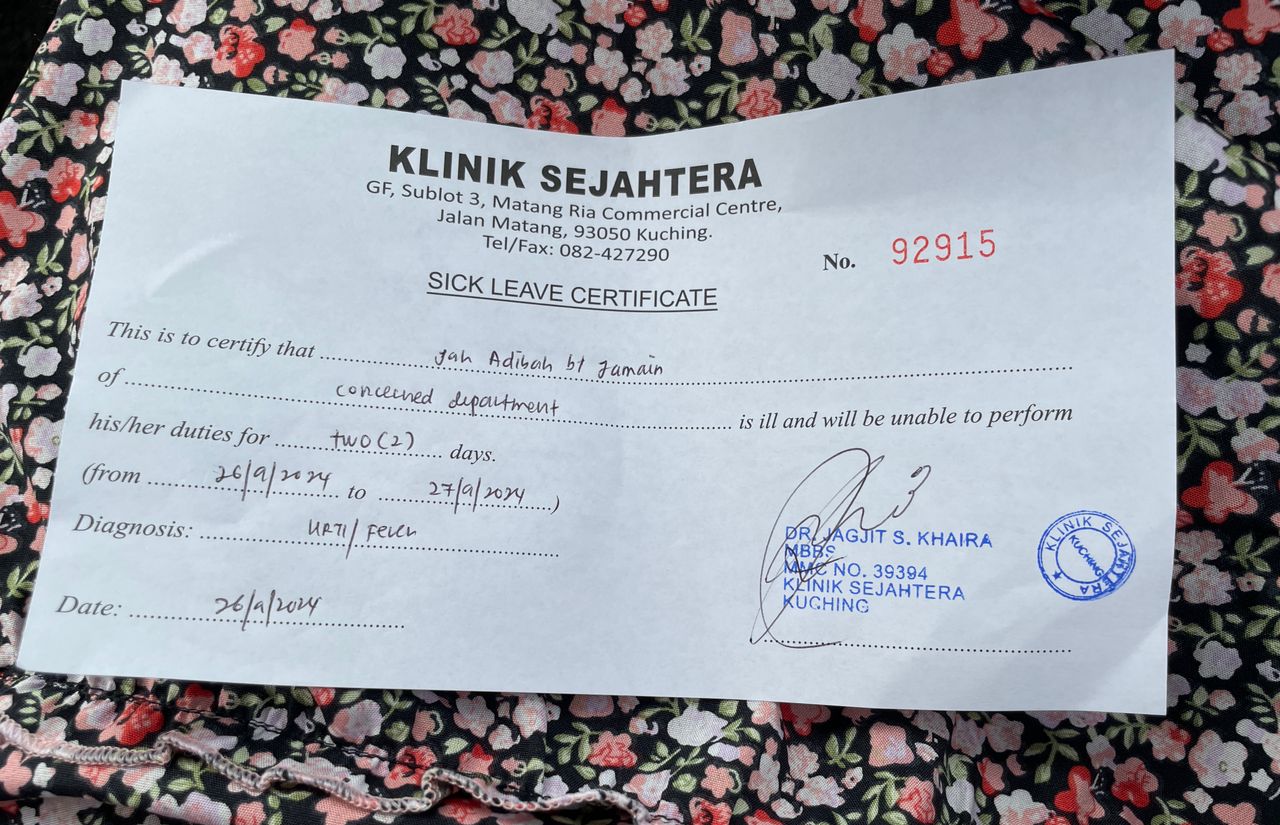 KLINIK SEJAHTERA
GF, Sublot 3, Matang Ria Commercial Centre,
Jalan Matang, 93050 Kuching.
Tel/Fax: 082-427290
No. 92915
SICK LEAVE CERTIFICATE
This is to certify that Jah Adibah bt Jamain
of concerned department is ill and will be unable to perform
his/her duties for two (2) days.
(from 26/9/2024 to 27/9/2024)
Diagnosis: URTI/Fever
Date: 26/9/2024
DR. JAGJIT S. KHAIRA
MBBS
MMC NO. 39394
KLINIK SEJAHTERA
KUCHING
KLINIK SEJAHTERA
KUCHING